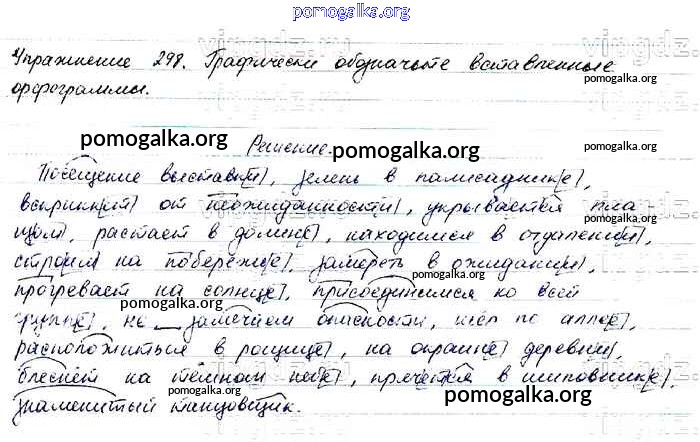 pomogalka.org
Упражнение 298. Графически обозначьте вставленные
орфограммы.
pomogalka.org
pomogalka.org
Решение.
pomogalka.org
Посещение выставк[и], зелень в палисадник[е],
вскрикн[ут] от неожиданности[и], укрывается пла
щом, растает в долин[е], находимся в отдалени[и],
pomogalka.org
строим на побережь[е], замереть в ожидани[и],
прогревает на солнц[е], присоединимся ко всей
pomogalka.org
pomogalka.org
групп[е], не замечаем опасности, шел по алле[е],
расположиться в рощиц[е], на окраин[е] деревн[и],
pomogalka.org
блеснет на тёмном неб[е], прячется в шиповник[е],
знаменитый танцовщик.
pomogalka.org